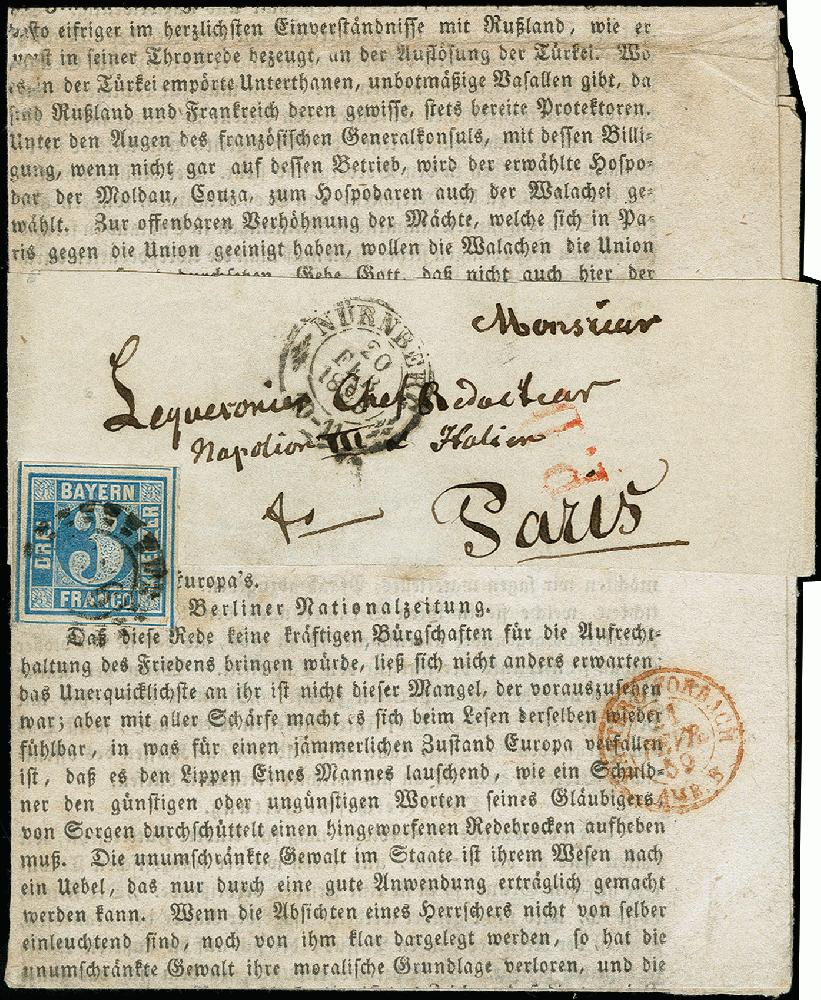 eifriger im herzlichsten Einverständnisse mit Rußland, wie er
in seiner Thronrede bezeugt, an der Auflösung der Türkei. Wo
es in der Türkei empörte Unterthanen, unbotmäßige Vasallen gibt, da
sind Rußland und Frankreich deren gewisse, stets bereite Protektoren.
Unter den Augen des französischen Generalkonsuls, mit dessen Billi-
gung, wenn nicht gar auf dessen Betrieb, wird der erwählte Hospo-
dar der Moldau, Couza, zum Hospodaren auch der Walachei ge-
wählt. Zur offenbaren Verhöhnung der Mächte, welche sich in Pa-
ris gegen die Union geeinigt haben, wollen die Walachen die Union
durchsetzen. Gebe Gott, daß nicht auch hier der
Monsieur
NÜRNBERG
20
FEB
10-11
Chef Redacteur
Napoleon III Italien
P.D.
Paris
BAYERN
DREI
3
KREUZER
FRANCO
Europa's.
Berliner Nationalzeitung.
Daß diese Rede keine kräftigen Bürgschaften für die Aufrecht-
haltung des Friedens bringen würde, ließ sich nicht anders erwarten;
das Unerquicklichste an ihr ist nicht dieser Mangel, der vorauszusehen
war; aber mit aller Schärfe macht es sich beim Lesen derselben wieder
fühlbar, in was für einen jämmerlichen Zustand Europa verfallen
ist, daß es den Lippen Eines Mannes lauschend, wie ein Schuld-
ner den günstigen oder ungünstigen Worten seines Gläubigers,
von Sorgen durchschüttelt einen hingeworfenen Redebrocken aufheben
muß. Die unumschränkte Gewalt im Staate ist ihrem Wesen nach
ein Uebel, das nur durch eine gute Anwendung erträglich gemacht
werden kann. Wenn die Absichten eines Herrschers nicht von selber
einleuchtend sind, noch von ihm klar dargelegt werden, so hat die
unumschränkte Gewalt ihre moralische Grundlage verloren, und die
FORBACH
21
FEVR
59
AMB. B